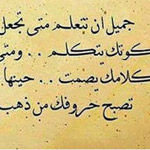 جميل أن تتعلم متى تجعل
كوتك يتكلم . . ومتى
كلامك يصمت . . حينها
تصبح حروفك من ذهب